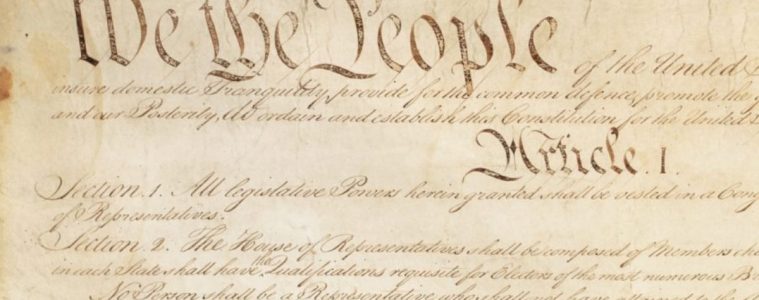 We the People of the United
insure domestic Tranquility, provide for the common defence, promote the
and our Posterity, do ordain and establish this Constitution for the United
Article. I.
Section. 1. All legislative Powers herein granted shall be vested in a Cong
of Representatives.
Section. 2. The House of Representatives shall be composed of Members cho
in each State shall have the Qualifications requisite for Electors of the most numerous B
No Person shall be a Representative who shall not have attained